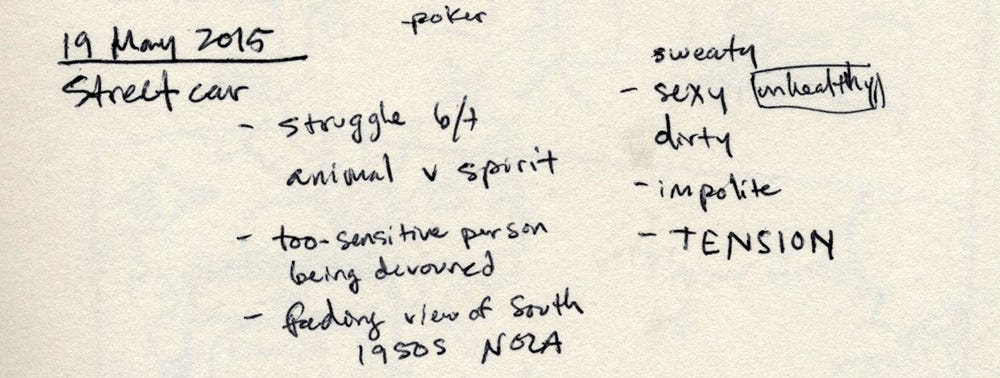 19 May 2015
-poker
Streetcar
- struggle b/t
animal v spirit
- too-sensitive person
being devoured
- fading view of South
1950S NOLA
sweaty
- sexy unhealthy
dirty
- impolite
- TENSION